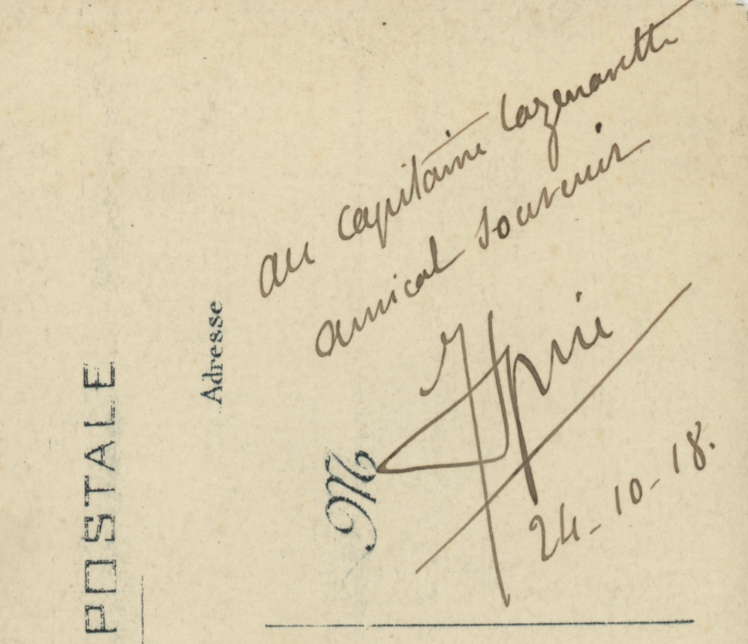 au capitaine Lazenarette
amical souvenir
24-10-18.
POSTALE
Adresse
M